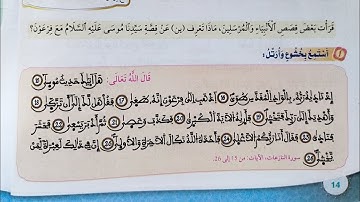 قَرَأْتَ بَعْضَ قِصَصِ الْأَنْبِيَاءِ وَالْمُرْسَلِينَ، مَاذَا تَعْرِفُ (ين) عَنْ قِصَّةِ سَيِّدِنَا مُوسَى عَلَيْهِ السَّلَامُ مَعَ فِرْعَوْنَ؟
1 أَسْتَمِعُ بِخُشُوعٍ وَأُرَتِّلُ:
قَالَ اللَّهُ تَعَالَى: هَلَ اَتِيٰكَ حَدِيثُ مُوسِىٰ 15
إِذْ نَادِيٰهُ رَبُّهُ بِالْوَادِ الْمُقَدَّسِ طُوِىٰ 16 اَذْهَبِ اِلَىٰ فِرْعَوْنَ إِنَّهُ طَغِىٰ 17 فَقُلْ هَل لَّكَ إِلَىٰ أَن تَزَّكِّىٰ 18
وَأَهْدِيَكَ إِلَىٰ رَبِّكَ فَتَخْشِىٰ 19 فَأَرِيٰهُ الَايَةَ الْكُبْرِىٰ 20 فَكَذَّبَ وَعَصِىٰ 21 ثُمَّ أَدْبَرَ يَسْعِىٰ 22 فَحَشَرَ
فَنَادِىٰ 23 فَقَالَ أَنَا رَبُّكُمُ الَاعْلِىٰ 24 فَأَخَذَهُ اللَّهُ نَكَالَ الَاخِرَةِ وَالُاولِىٰ 25 إِنَّ فِي ذَٰلِكَ لَعِبْرَةً لِّمَنْ
يَّخْشِىٰ 26 سورة النازعات، الآيات: من 15 إلى 26.
14